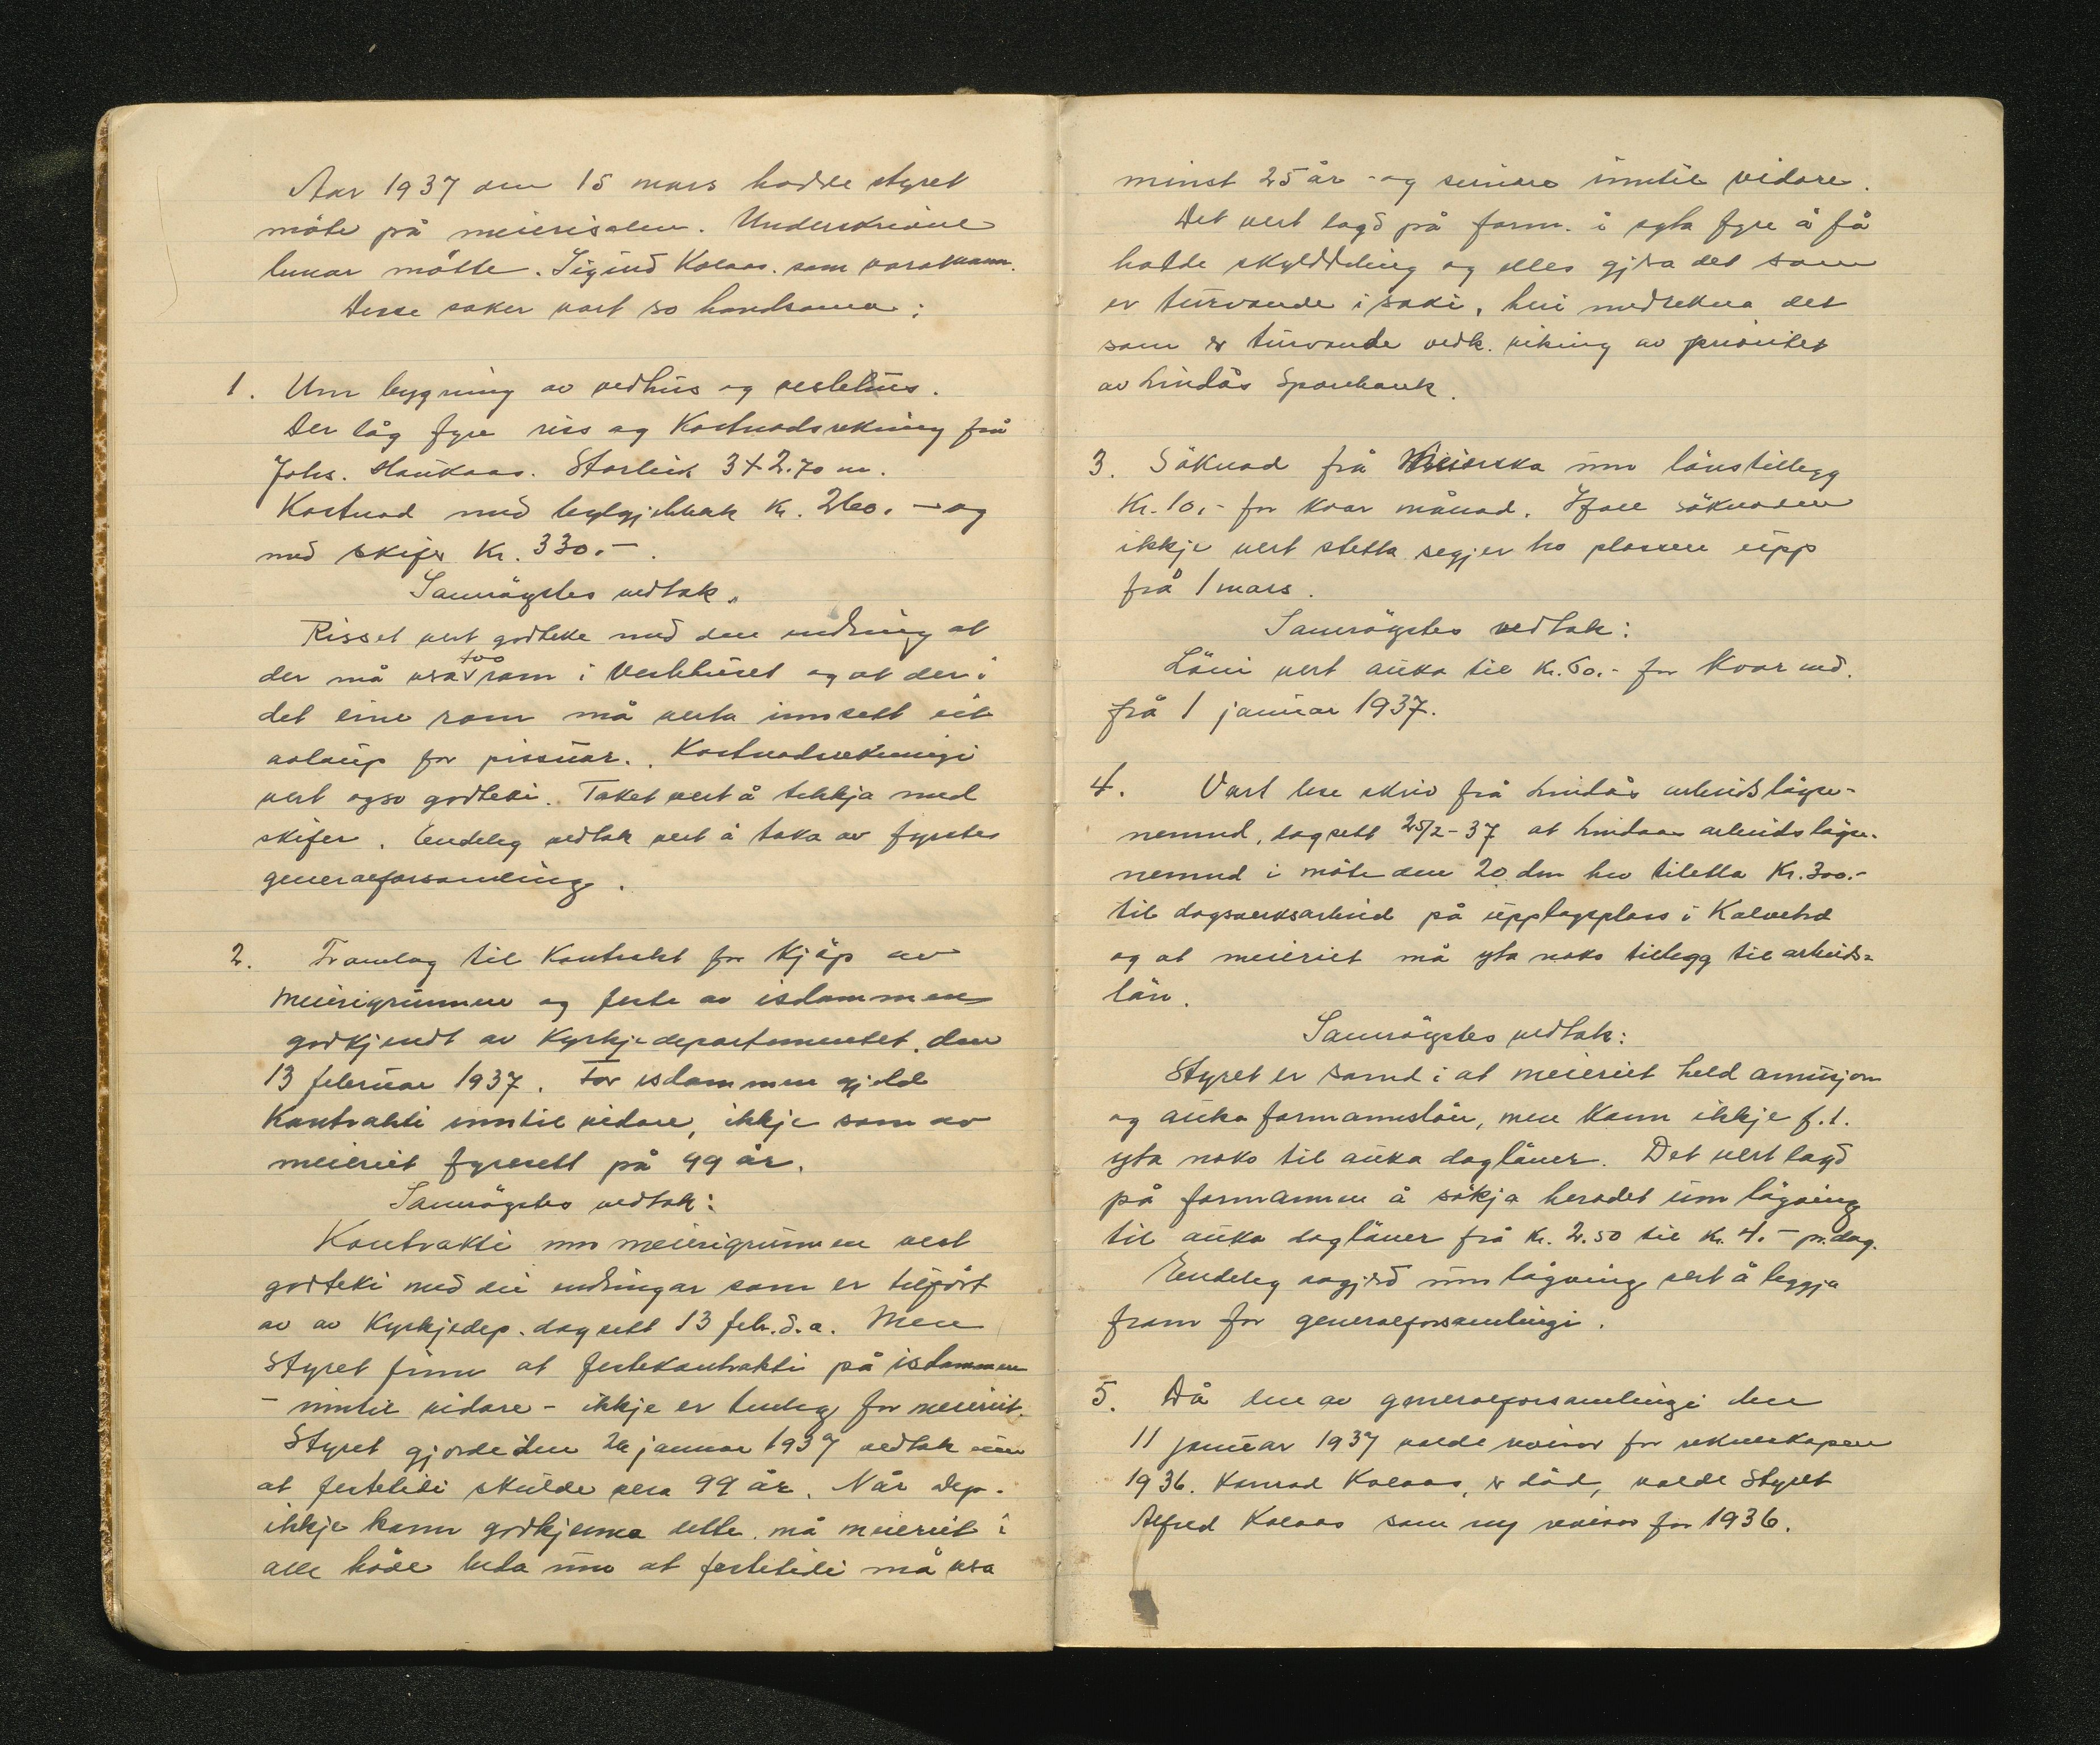 Aar 1937 den 15 mars hadde styret
möte på meierisalen. Underskrivne
lemar mötte. Sigurd Kolaas som varamann.
Desse saker vart so handsama:
1. Um bygning av vedhus og vesletehus.
Der låg fyre riss og Kostnadsrekning frå
Johs. Haukaas. Storleik 3 x 2.70 m.
Kostnad med bylgjeblekk Kr. 260.- og
med skifer Kr. 330.-.
Samröystes vedtak.
Risset vert godteke med den endring at
der må vera too rom i Veslehuset og at der i
det eine rom må verta innsett eit
avlaup for pissuar. Kostnadsrekningi
vert ogso godteki. Taket vert å tekkja med
skifer. Endeleg vedtak vert å taka av fyrstes
generalforsamling.
2. Framlag til Kontrakt for Kjöp av
meierigrunnen og feste av isdammen
godkjendt av Kyrkjedepartementet den
13 februar 1937. For isdammen gjeld
Kontrakti inntil vidare, ikkje som av
meieriet fyresett på 99 år.
Samröystes vedtak:
Kontrakti um meierigrunnen vert
godteki med dei endringar som er tilfört
av av Kyrkjedep. dagsett 13 febr. d.a. Men
Styret finn at festekontrakti på isdammen
- inntil vidare - ikkje er tenleg for meieriet.
Styret gjorde den 26 januar 1937 vedtak um
at festetidi skulde vera 99 år. Når dep.
ikkje kann godkjenna dette, må meieriet i
alle höve beda um at festetidi må vera
minst 25 år - og seinare inntil vidare.
Det vert lagd på form. i syta fyre å få
halde skylddeling og elles gjera det som
er turvande i saki, heri medrekna det
som er turvande vedk. viking av prioritet
av Lindås Sparebank.
3. Söknad frå Meierska um lönstillegg
Kr. 10.- for kvar månad. Ifall söknaden
ikkje vert stetta segjer ho plassen upp
frå 1 mars.
Samröystes vedtak:
Löni vert auka til Kr. 60.- for Kvar md.
frå 1 januar 1937.
4. Vart lese skriv frå Lindås arbeidslöyse-
nemnd, dagsett 25/2-37 at Lindaas arbeidslöyse-
nemnd i möte den 20 dm hev tiletla Kr. 300.-
til dagsverksarbeid på upplagsplass i Kalvehd
og at meieriet må yta noko tillegg til arbeids-
lön.
Samröystes vedtak:
Styret er samd i at meieriet held amusjon
og auka formannslön, men kann ikkje f.t.
yta noko til auka daglöner. Det vert lagd
på formannen å sökja heradet um lögving
til auka daglöner frå Kr. 2.50 til Kr. 4.- pr. dag.
Endeleg avgjerd um lögving vert å leggja
fram for generalforsamlingi.
5. Då den av generalforsamlingi den
11 januar 1937 valde revisor for rekneskapen
1936. Konrad Kolaas, er död, valde Styret
Alfred Kolaas som ny revisor for 1936.